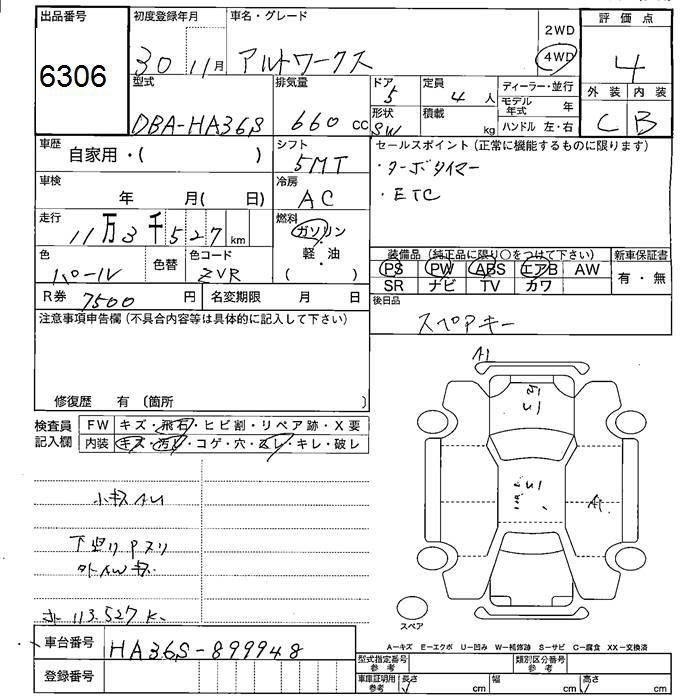 出品番号
6306
初度登録年月
30 11月
車名・グレード
アルトワークス
2WD
4WD
評価点
4
外装 内装
C B
型式
DBA-HA36S
排気量
660 cc
ドア
5
形状
SW
定員
4 人
積載
kg
ディーラー・並行
モデル年式 年
ハンドル 左・右
車歴
自家用・( )
シフト
5MT
セールスポイント(正常に機能するものに限ります)
・ターボタイマー
・ETC
車検
年 月( 日)
冷房
AC
走行
11万3千527 km
燃料
ガソリン
軽・油
( )
色
パール
色替
色コード
ZVR
装備品(純正品に限り○をつけて下さい)
PS PW ABS エアB AW
SR ナビ TV カワ
新車保証書
有・無
R券 7500 円
名変期限 月 日
後日品
スペアキー
注意事項申告欄(不具合内容等は具体的に記入して下さい)
修復歴 有(箇所 )
検査員記入欄
FW キズ・飛石・ヒビ割・リペア跡・X要
内装 キズ・汚レ・コゲ・穴・スレ・キレ・破レ
小キズAU
下廻りPスリ
外AWキズ
113.527K
A1
スペア
車台番号
HA36S-899948
登録番号
A−キズ E−エクボ U−凹み W−補修跡 S−サビ C−腐食 XX−交換済
型式指定番号参考
類別区分番号参考
車庫証明用参考
長さ cm
幅 cm
高さ cm